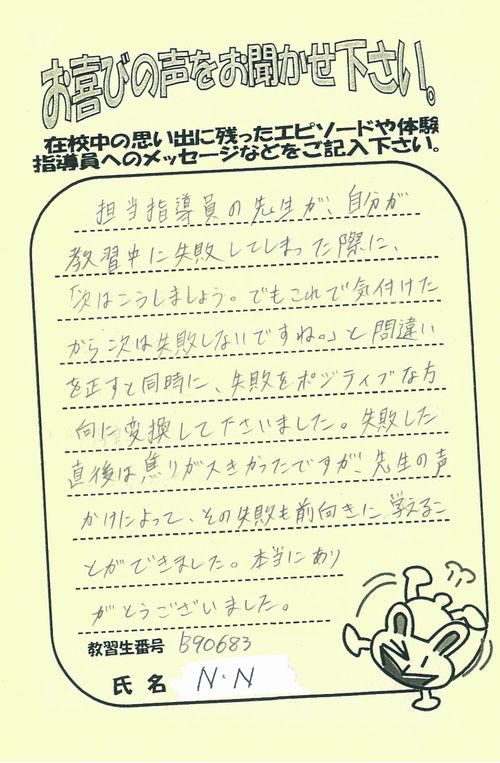 お喜びの声をお聞かせ下さい。
在校中の思い出に残ったエピソードや体験
指導員へのメッセージなどをご記入下さい。
担当指導員の先生が、自分が
教習中に失敗してしまった際に、
「次はこうしましょう。でもこれで気付けた
から次は失敗しないですね。」と間違い
を正すと同時に、失敗をポジティブな方
向に変換して下さいました。失敗した
直後は焦りが大きかったですが、先生の声
かけによって、その失敗も前向きに学えるこ
とができました。本当にあり
がとうございました。
教習生番号 590683
氏名 N・N